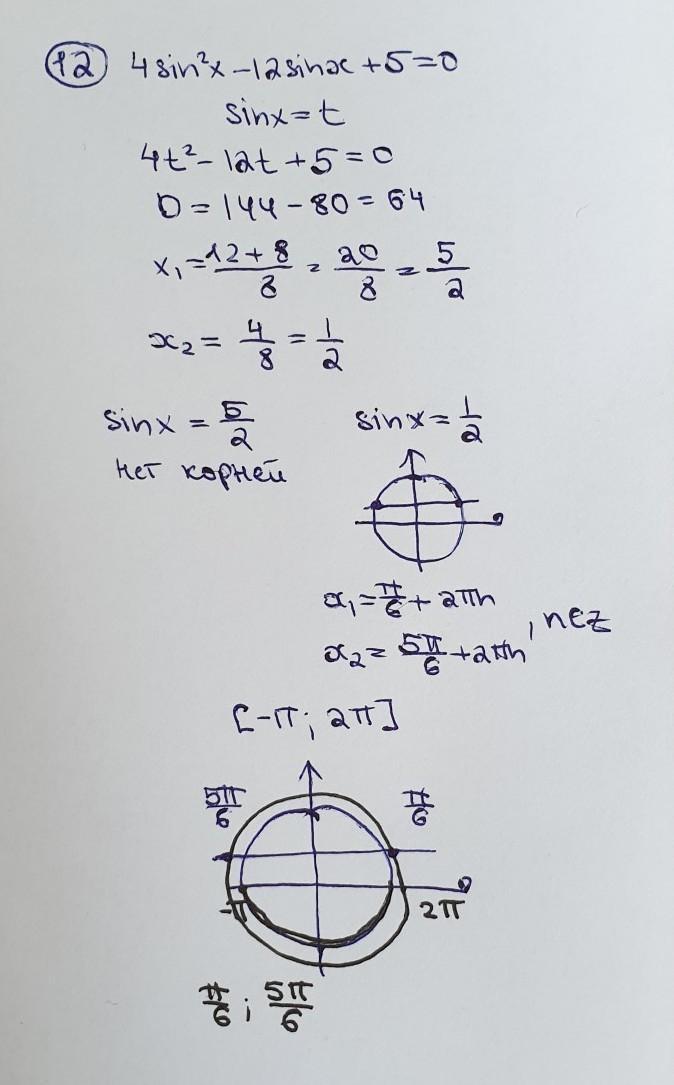 12 4sin²x – 12sinx + 5 = 0
sinx = t
4t² – 12t + 5 = 0
D = 144 – 80 = 64
x₁ = (12 + 8)/8 = 20/8 = 5/2
x₂ = 4/8 = 1/2
sinx = 5/2 sinx = 1/2
нет корней
x₁ = π/6 + 2πn
x₂ = 5π/6 + 2πn , n∈z
[-π; 2π]
5π/6 π/6
-π 2π
π/6 ; 5π/6